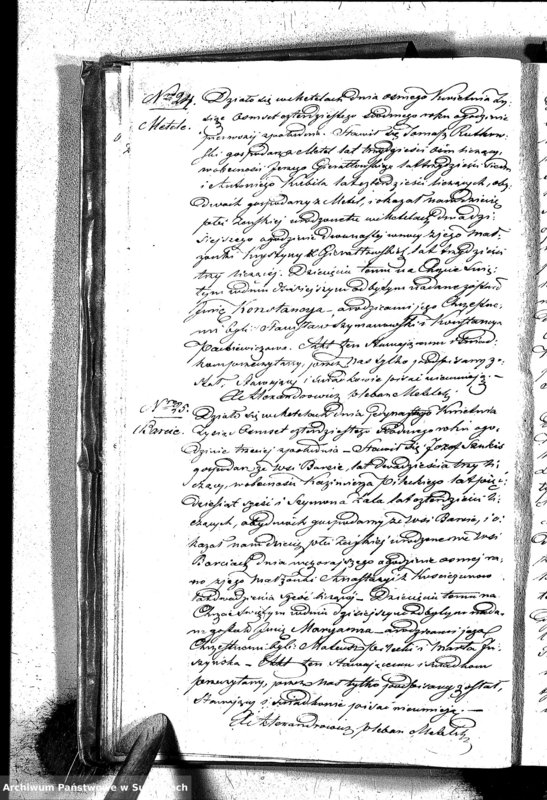 Nro 94.
Metele.
Działo się w Metelach dnia ósmego Kwietnia ty-
siąc ośmset czterdziestego siódmego roku o godzinie
pierwszej z południa. Stawił się Tomasz Rutkow-
ski gospodarz z Metel lat trzydzieści ośm liczący,
w obecności Jerzego Gieratowskiego lat
i Antoniego lat czterdzieści liczących, oby-
dwóch gospodarzy z Metel, i okazał nam dziecię
płci żeńskiej urodzone tu w Metelach dnia dzi-
siejszego o godzinie dwunastej w nocy z jego mał-
żonki Krystyny z lat trzydzieści
trzy liczącej. Dziecięciu temu na Chrzcie Świę-
tym w dniu dzisiejszym odbytym nadane zostało
Imię Konstancya, a rodzicami jego Chrzestne-
mi byli Stanisław Szymanowski i Konstancya
Akt ten Stawającemu i Świad-
kom przeczytany, przez Nas tylko podpisany zo-
stał, Stawający i Świadkowie pisać nieumieją.—
Alexandrowicz Pleban Metelski
Nro 95.
Barcie.
Działo się w Metelach dnia jedynastego Kwietnia
tysiąc ośmset czterdziestego siódmego roku o go-
dzinie trzeciej z południa — Stawił się Józef
gospodarz ze Wsi Barcie, lat dwadzieścia trzy li-
czący, w obecności Kazimierza lat pięć-
dziesiąt sześć i Szymona lat czterdzieści li-
czących, obydwóch gospodarzy ze Wsi Barcie, i o-
kazał nam dziecię płci żeńskiej urodzone we Wsi
Barciach dnia wczorajszego o godzinie ósmej ra-
no z jego małżonki Anastazyi z
lat dwadzieścia sześć liczącej — Dziecięciu temu na
Chrzcie Świętym w dniu dzisiejszym odbytym nada-
ne zostało Imię Maryanna — a rodzicami jego
Chrzestnemi byli Mateusz i Marta
Akt ten Stawającemu i Świadkom
przeczytany, przez Nas tylko podpisany został,
Stawający i Świadkowie pisać nieumieją.—
Alexandrowicz Pleban Metelski
Archiwum Państwowe w Suwałkach